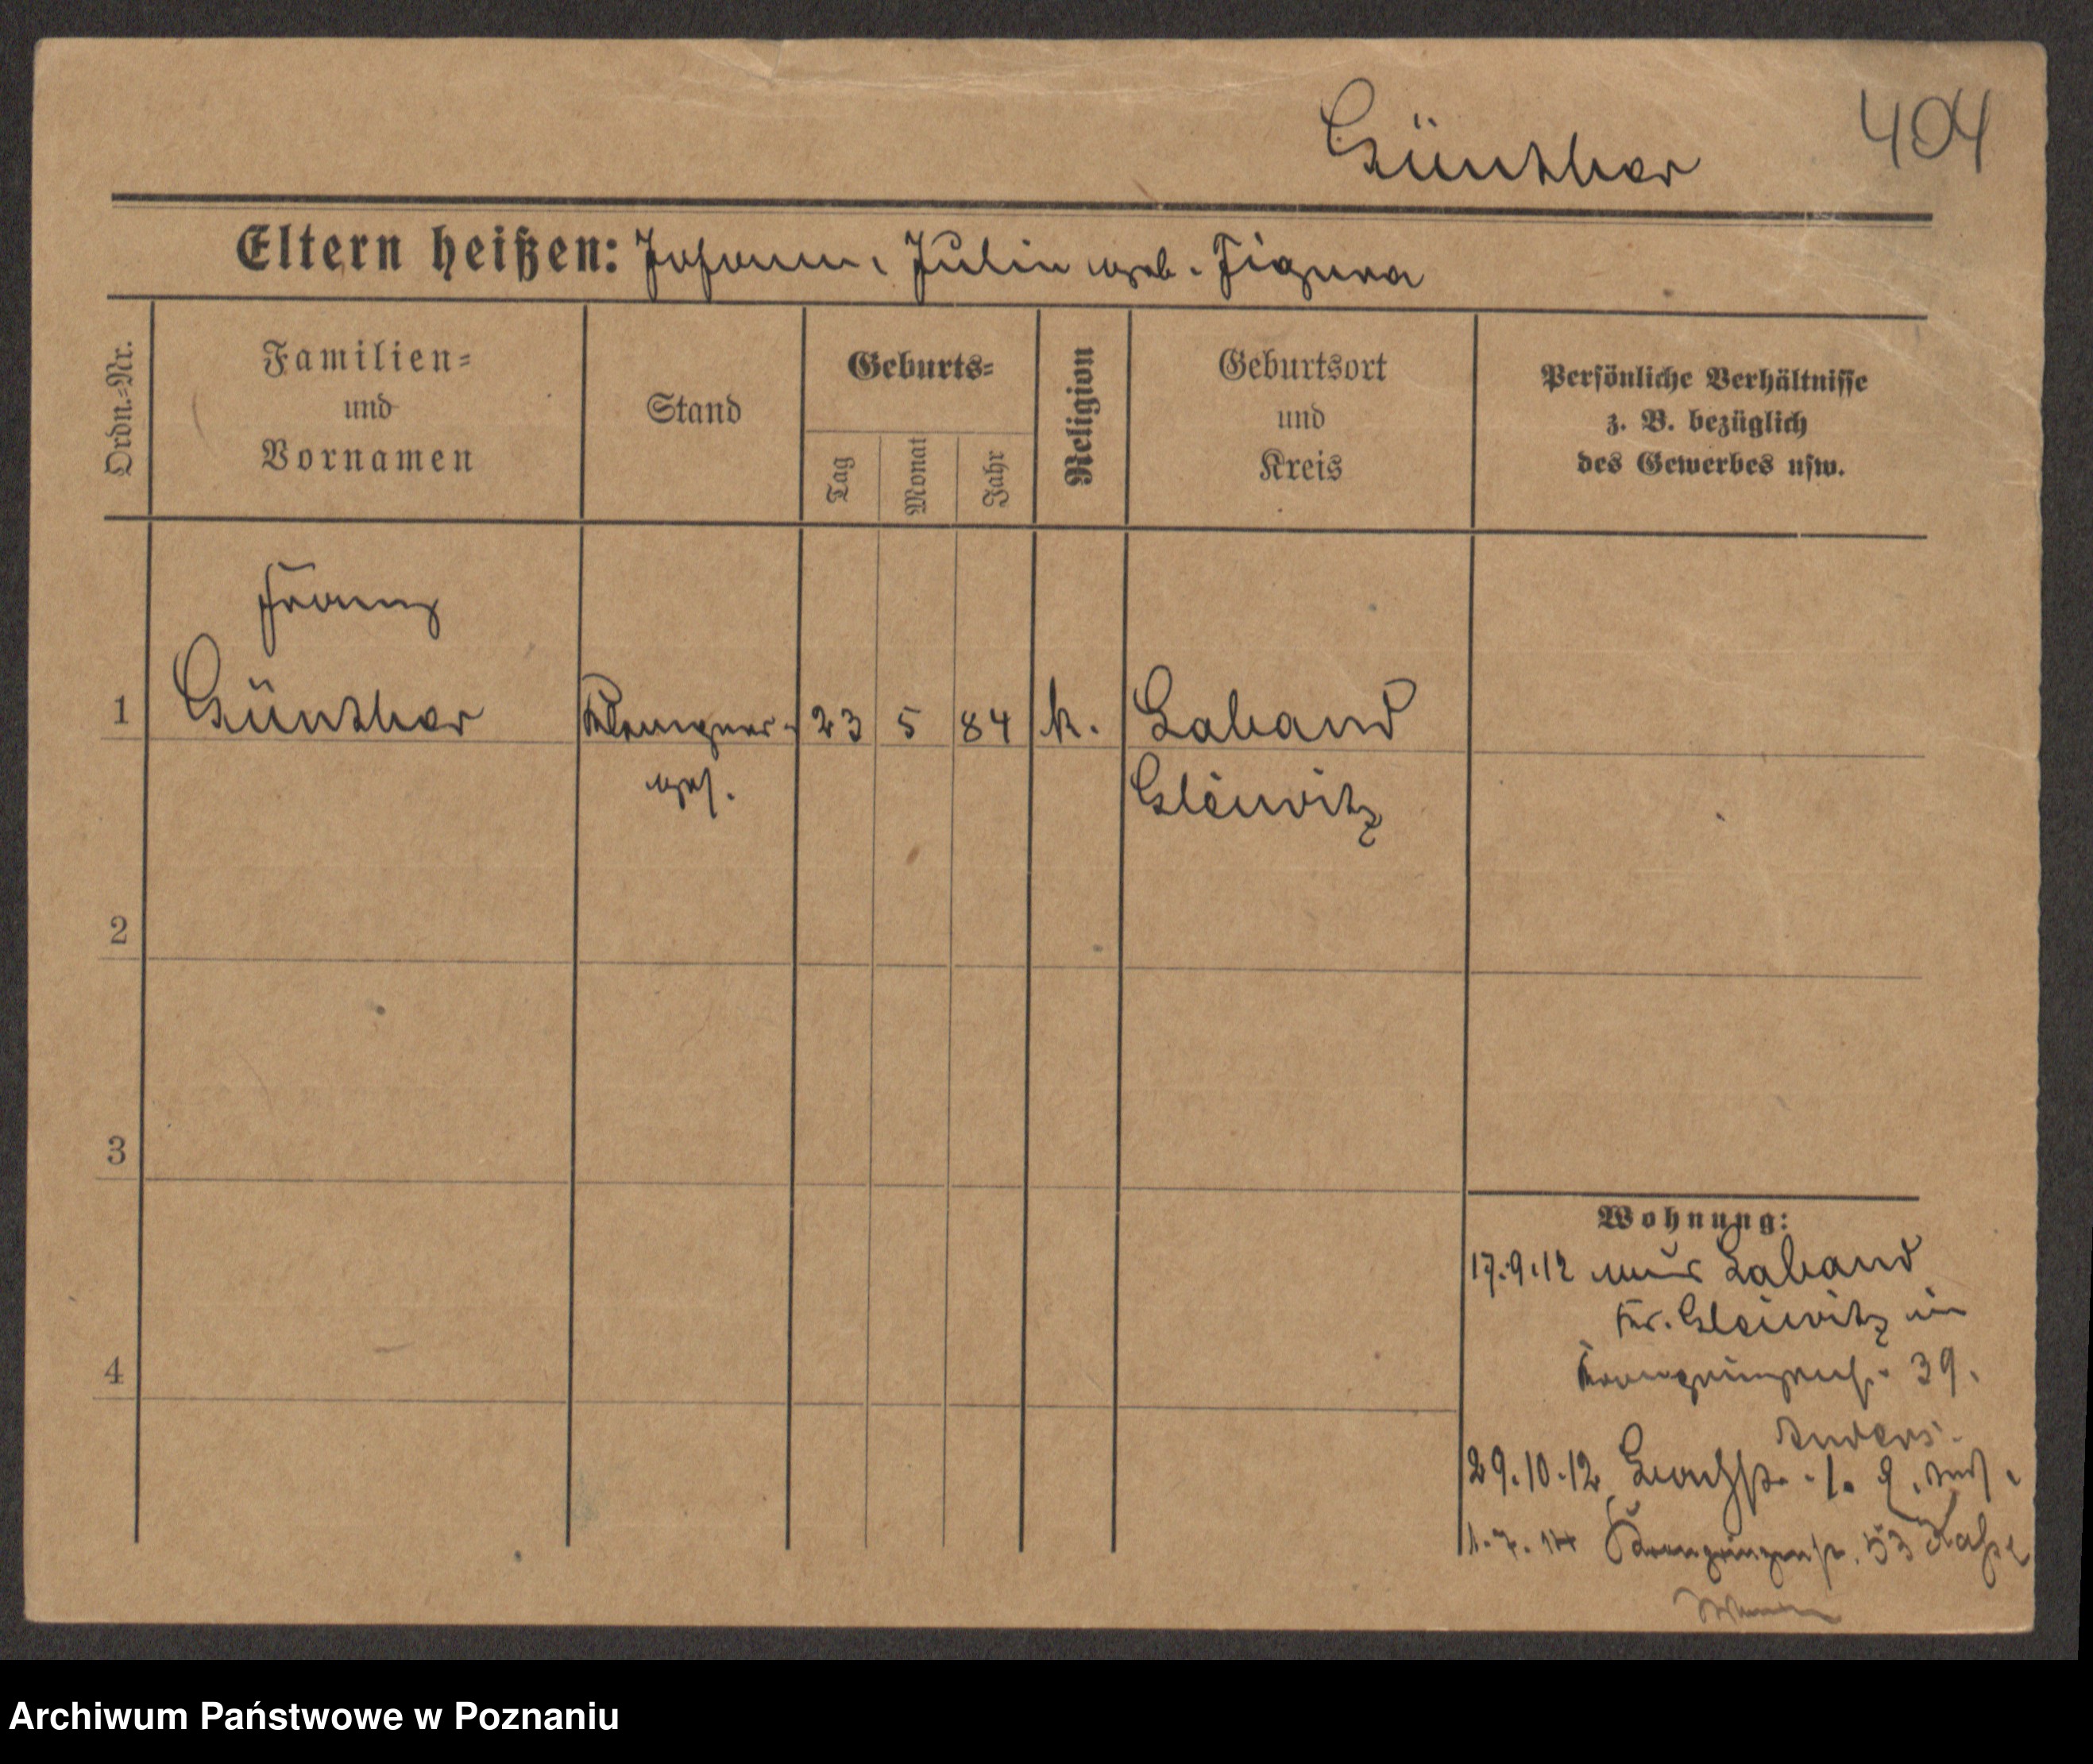 Günther 404
Eltern heißen: Johann, Julie geb. Figura
Ordn.=Nr.
Familien=
und
Vornamen
Stand
Geburts=
Tag
Monat
Jahr
Religion
Geburtsort
und
Kreis
Persönliche Verhältnisse
z. B. bezüglich
des Gewerbes usw.
Franz
1 Günther Klempner- 23 5 84 k. Laband
ges. Gleiwitz
2
3
4
Wohnung:
17.9.12 aus Laband
Kr. Gleiwitz in
Kronprinzenst. 39.
29.10.12
1.7.14 Kronprinzenstr. 53
Archiwum Państwowe w Poznaniu